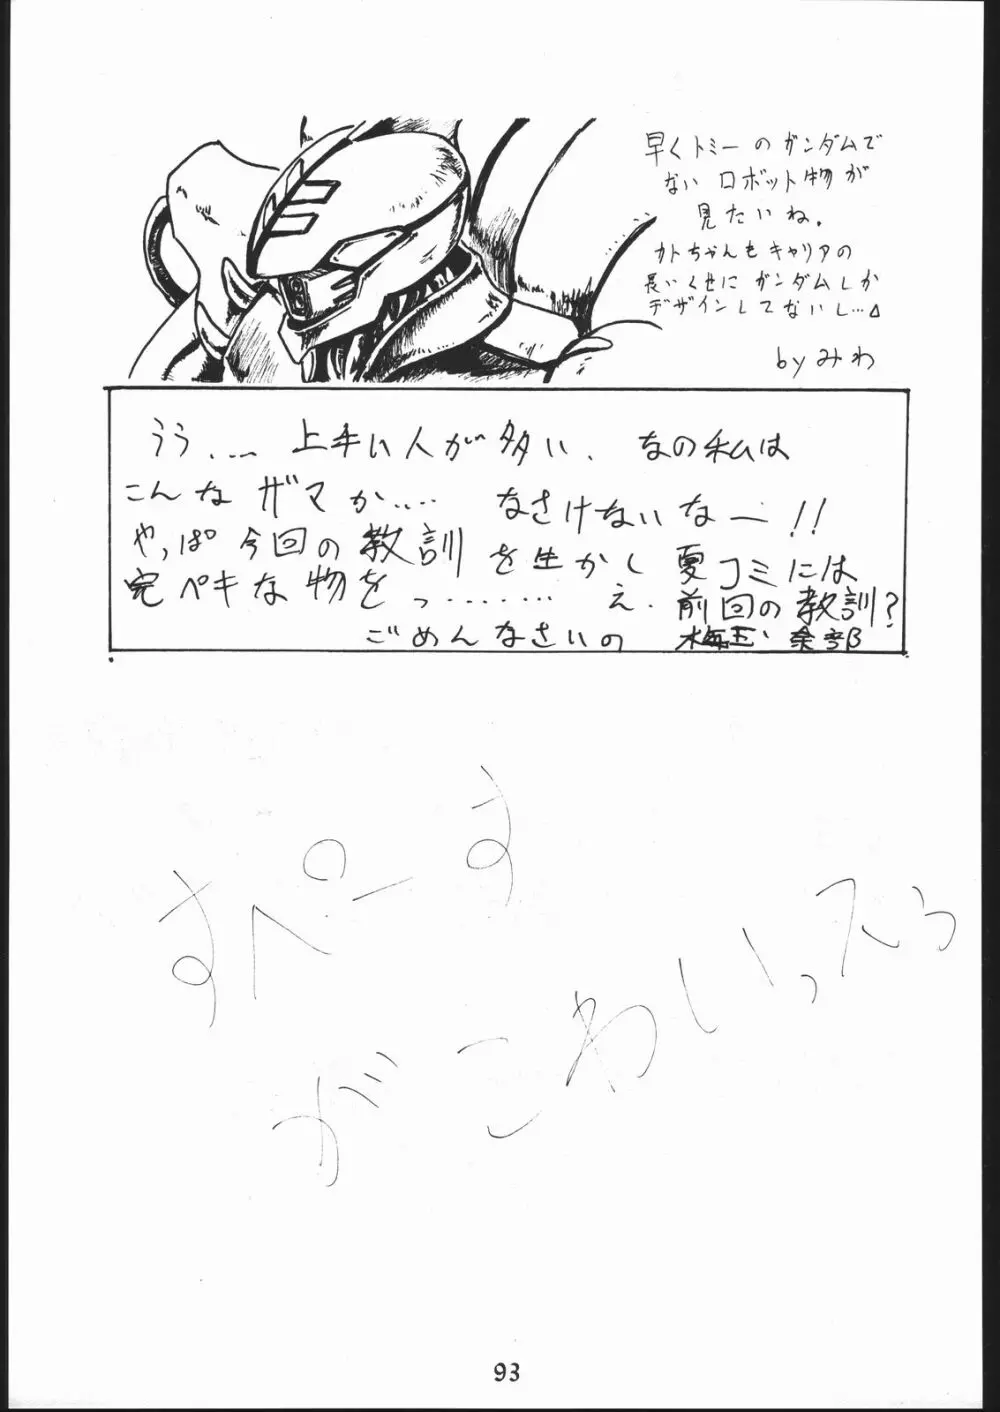 早くトミーのガンダムで
ない ロボット物が
見たいね.
カトちゃんもキャリアの
長いくせに ガンダムしか
デザインしてないし…
by みわ
うう、…. 上手い人が多い、なの私は
こんなザマか‥‥ なさけないなー!!
やっぱ今回の教訓を生かし 夏コミには
完ペキな物をっ……… え、前回の教訓?
ごめんなさいの
すぺーす
がこわいってう
93